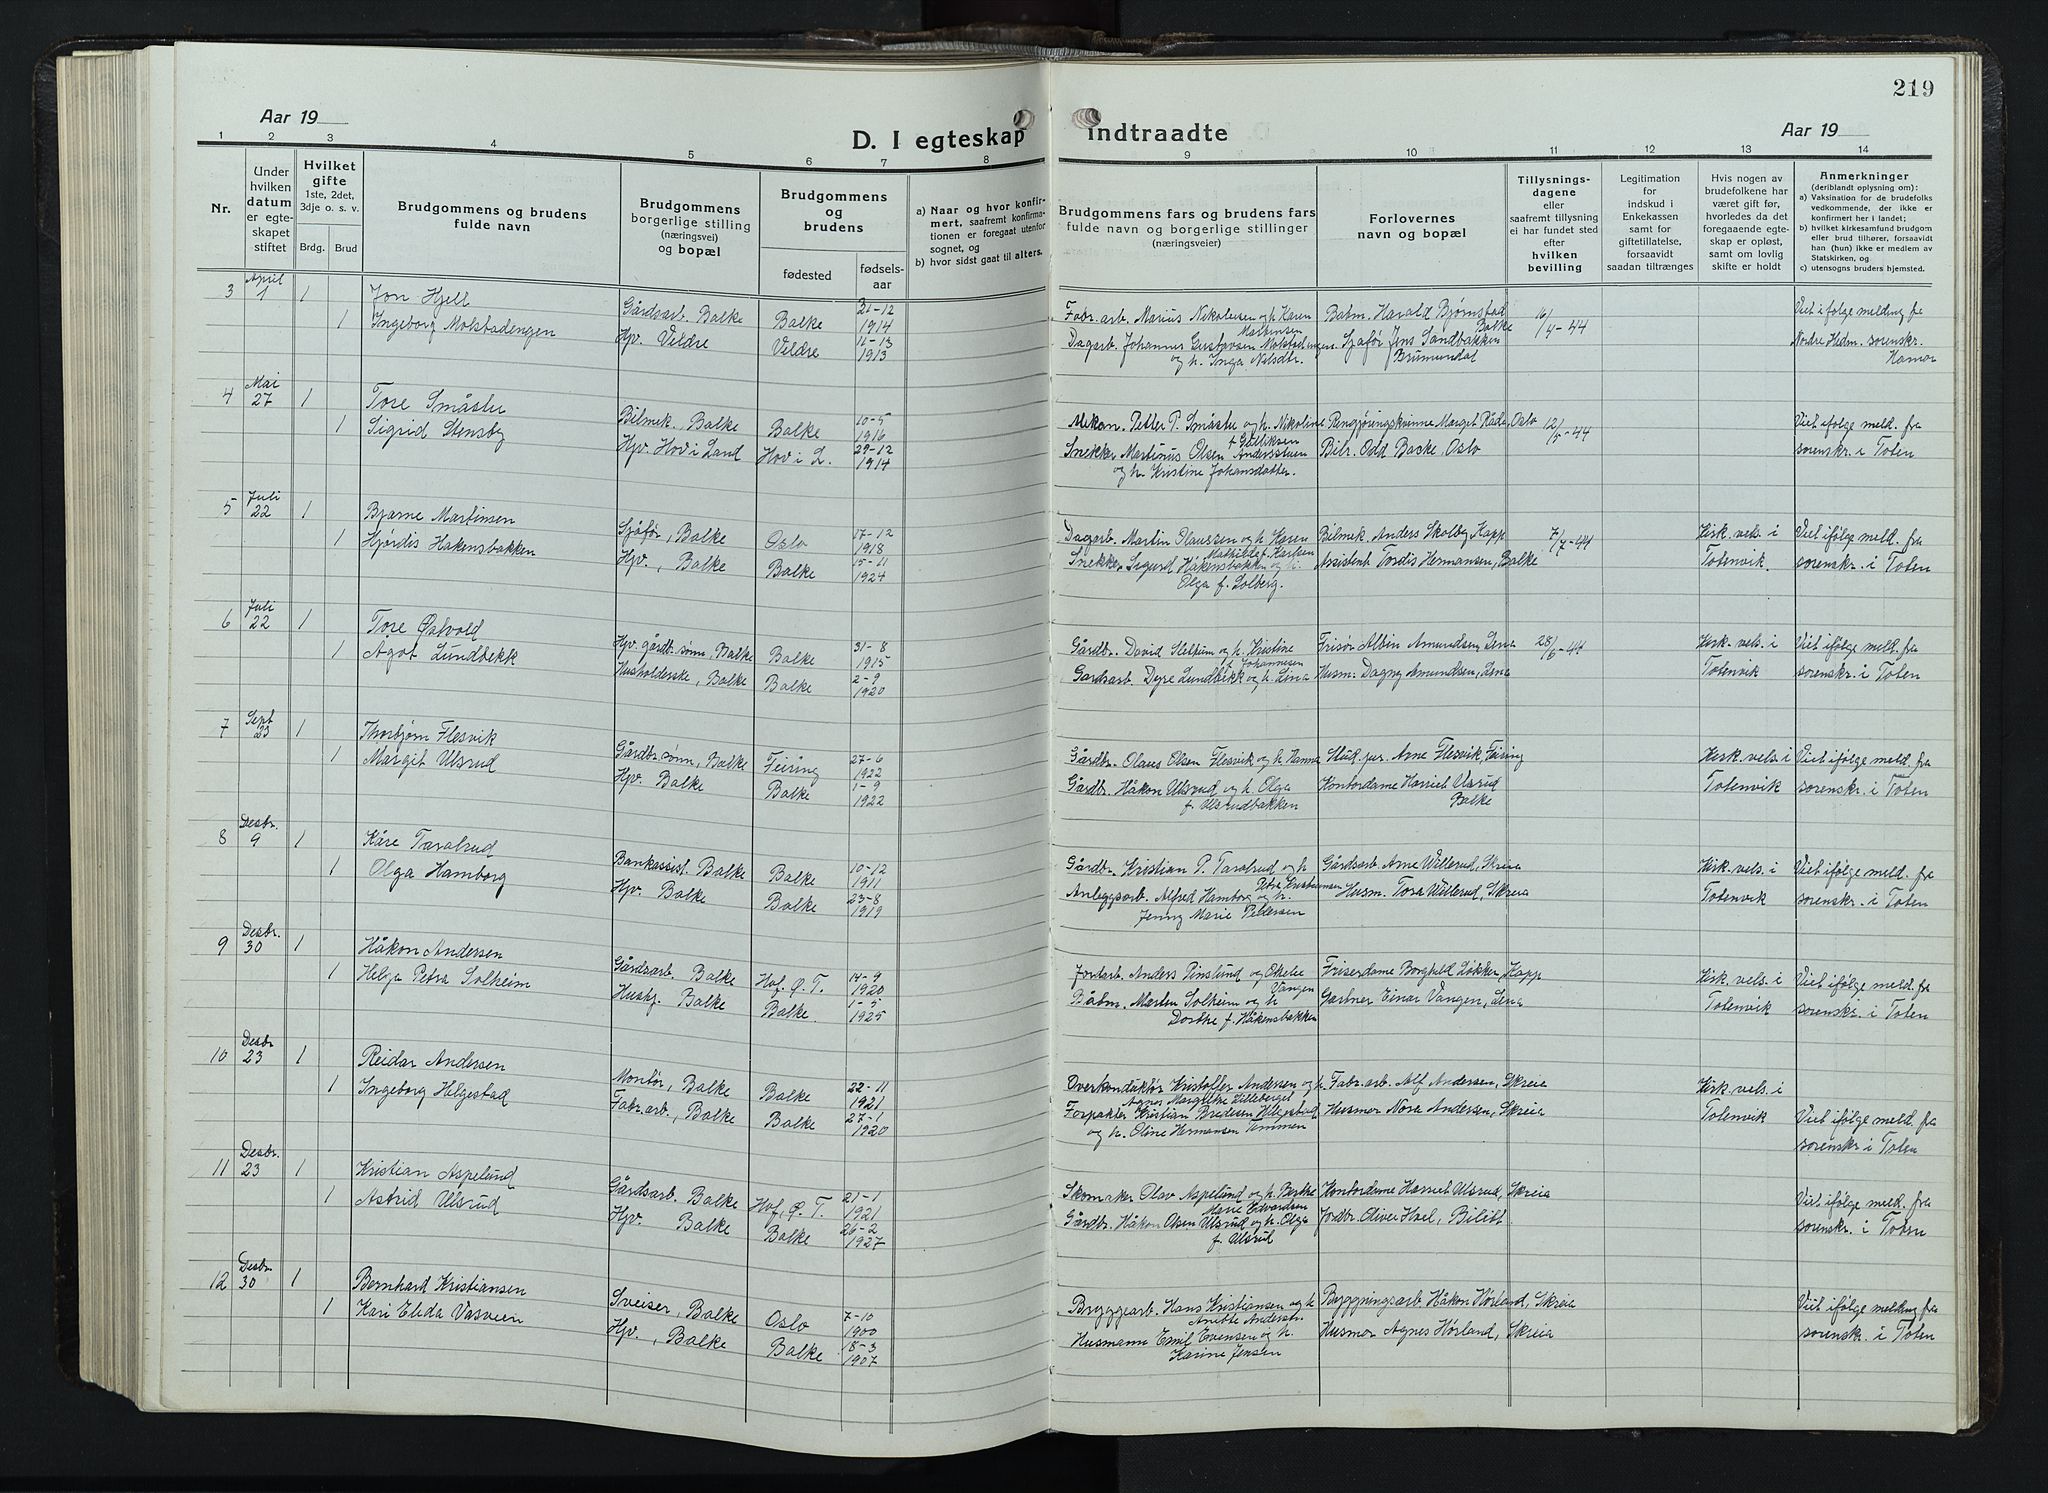 219
Aar 19
D. I egteskap indtraadte
Aar 19
1 2 3 4 5 6 7 8 9 10 11 12 13 14
Nr.
Under hvilken datum er egteskapet stiftet
Hvilket gifte 1ste, 2det, 3dje o. s. v.
Brdg. Brud
Brudgommens og brudens fulde navn
Brudgommens borgerlige stilling (næringsvei) og bopæl
Brudgommens og brudens
fødested fødselsaar
a) Naar og hvor konfirmert, saafremt konfirmationen er foregaat utenfor sognet, og
b) hvor sidst gaat til alters.
Brudgommens fars og brudens fars fulde navn og borgerlige stillinger (næringsveier)
Forlovernes navn og bopæl
Tillysningsdagene eller saafremt tillysning ei har fundet sted efter hvilken bevilling
Legitimation for indskud i Enkekassen samt for giftetillatelse, forsaavidt saadan tiltrænges
Hvis nogen av brudefolkene har været gift før, hvorledes da det foregaaende egteskap er opløst, samt om lovlig skifte er holdt
Anmerkninger (deriblandt oplysning om):
a) Vaksination for de brudefolks vedkommende, der ikke er konfirmert her i landet;
b) hvilket kirkesamfund brudgom eller brud tilhører, forsaavidt han (hun) ikke er medlem av Statskirken, og
c) utensogns bruders hjemsted.
3 April 1 1 Jon Hjell Gårdsarb. Balke Balke 21-12 1914 Fabr.arb. Marius Nikolaisen og h. Karen Martinsen Batm. Harald Bjørnstad Balke 16/4-44 Viet ifølge melding fra
1 Ingeborg Molstadengen Hpv. Veldre Veldre 11-13 1913 Dagarb. Johannes Gustavsen Molstadengen og h. Inga Nilsdtr. Sjåfør Jens Sandbakken Brumundal Nordre Hedm. sorenskr. Hamar
4 Mai 27 1 Tore Småstu Bilmek. Balke Balke 10-5 1916 Mekan. Petter P. Småstu og h. Nikoline f. Gulliksen Rengjøringskvinne Marget Råde, Oslo 12/5-44 Viet ifølge meld. fra
1 Sigrid Stensby Hpv. Hov i Land Hov i L. 29-12 1914 Snekker Martinus Olsen Andersstuen og h. Kristine Johansdatter. Bilr. Odd Backe, Oslo sorenskr. i Toten
5 Juli 22 1 Bjarne Martinsen Sjåfør, Balke Oslo 17-12 1918 Dagarb. Martin Olaussen og h. Karen Mathilde f. Karlsen Bilmek. Anders Skolby, Kapp 7/7-44 Kirk. vels. i Totenvik. Viet ifølge meld. fra
1 Hjørdis Håkensbakken Hpv., Balke Balke 15-11 1924 Snekker Sigurd Håkensbakken og h. Olga f. Solberg. Assistent Tordis Hermansen, Balke sorenskr. i Toten
6 Juli 22 1 Tore Østvold Hpv. gårdbr. sønn, Balke Balke 31-8 1915 Gårdbr. David Sletum og h. Kristine f. Johannesen Frisør Albin Amundsen, Lena 28/6-44 Kirk. vels. i Totenvik Viet ifølge meld. fra
1 Agot Lundbekk Husholderske, Balke Balke 2-9 1920 Gardsarb. Dyre Lundbekk og h. Lina Husm. Dagny Amundsen, Lena sorenskr. i Toten
7 Sept 23 1 Thorbjørn Flesvik Gårdbr.sønn, Balke Feiring 27-6 1922 Gårdbr. Olaves Olsen Flesvik og h. Hanna Stud. jur. Arne Flesvik, Feiring Kirk. vels. i Totenvik Viet ifølge meld. fra
1 Margit Ulsrud Hpv. Balke Balke 1-9 1922 Gårdbr. Håkon Ulsrud og h. Olga f. Ulsrudbakken Kontordame Harriet Ulsrud Balke sorenskr. i Toten
8 Desbr. 9 1 Kåre Taralrud Bankassist. Balke Balke 10-12 1911 Gårdbr. Kristian P. Taralrud og h. Petra Kristiansen Gårdsarb. Arne Willerud, Skreia Kirk. vels. i Totenvik Viet ifølge meld. fra
1 Olga Hamborg Hpv. Balke Balke 23-8 1919 Anleggsarb. Alfred Hamborg og h. Jenny Marie Pedersen Husm. Tora Willerud, Skreia sorenskr. i Toten
9 Desbr. 30 1 Håkon Andersen Gårdsarb. Balke Hof. Ø. T. 14-9 1920 Jordarb. Anders Pinslund og Otelie Vangen Friserdame Borghild Løkken, Kapp Kirk. vels. i Totenvik Viet ifølge meld. fra
1 Helga Petra Solheim Hushj. Balke Balke 1-5 1925 Båtm. Marten Solheim og h. Dorthe f. Håkensbakken Gartner Einar Vangen, Lena sorenskr. i Toten
10 Desbr 23 1 Reidar Andersen Montør, Balke Balke 22-11 1921 Overkonduktør Kristoffer Andersen og h. Agnes Margrethe Lilleberget Fabr.arb. Alf Andersen, Skreia Kirk. vels. i Totenvik
1 Ingeborg Helgestad Fabr.arb., Balke Balke 27-1 1920 Forpakter Kristian Bredesen Helgestad og h. Oline Hermansen Tømmen Husmor Nora Andersen, Skreia Viet ifølge meld. fra sorenskr. i Toten
11 Desbr. 23 1 Kristian Aspelund Gårdsarb. Balke Hof, Ø. T. 21-1 1921 Skomaker Olav Aspelund og h. Berthe Marie Edvardsen Kontordame Harriet Ulsrud, Skreia Viet ifølge meld. fra
1 Astrid Ulsrud Hpv. Balke Balke 26-2 1927 Gårdbr. Håkon Olsen Ulsrud og h. Olga f. Ulsrud Jordbr. Oliver Hoel, Bilitt sorenskr. i Toten
12 Desbr 30 1 Bernhard Kristiansen Sveiser, Balke Oslo 7-10 1900 Bryggearb. Hans Kristiansen og h. Anette Anderstr. Byggningsarb. Håkon Hørland, Skreia Viet ifølge melding fra
1 Kari Elida Vasveen Hpv., Balke Balke 18-3 1907 Husmann Emil Evensen og h. Karine Jensen Husmor Agnes Hørland, Skreia sorenskr. i Toten